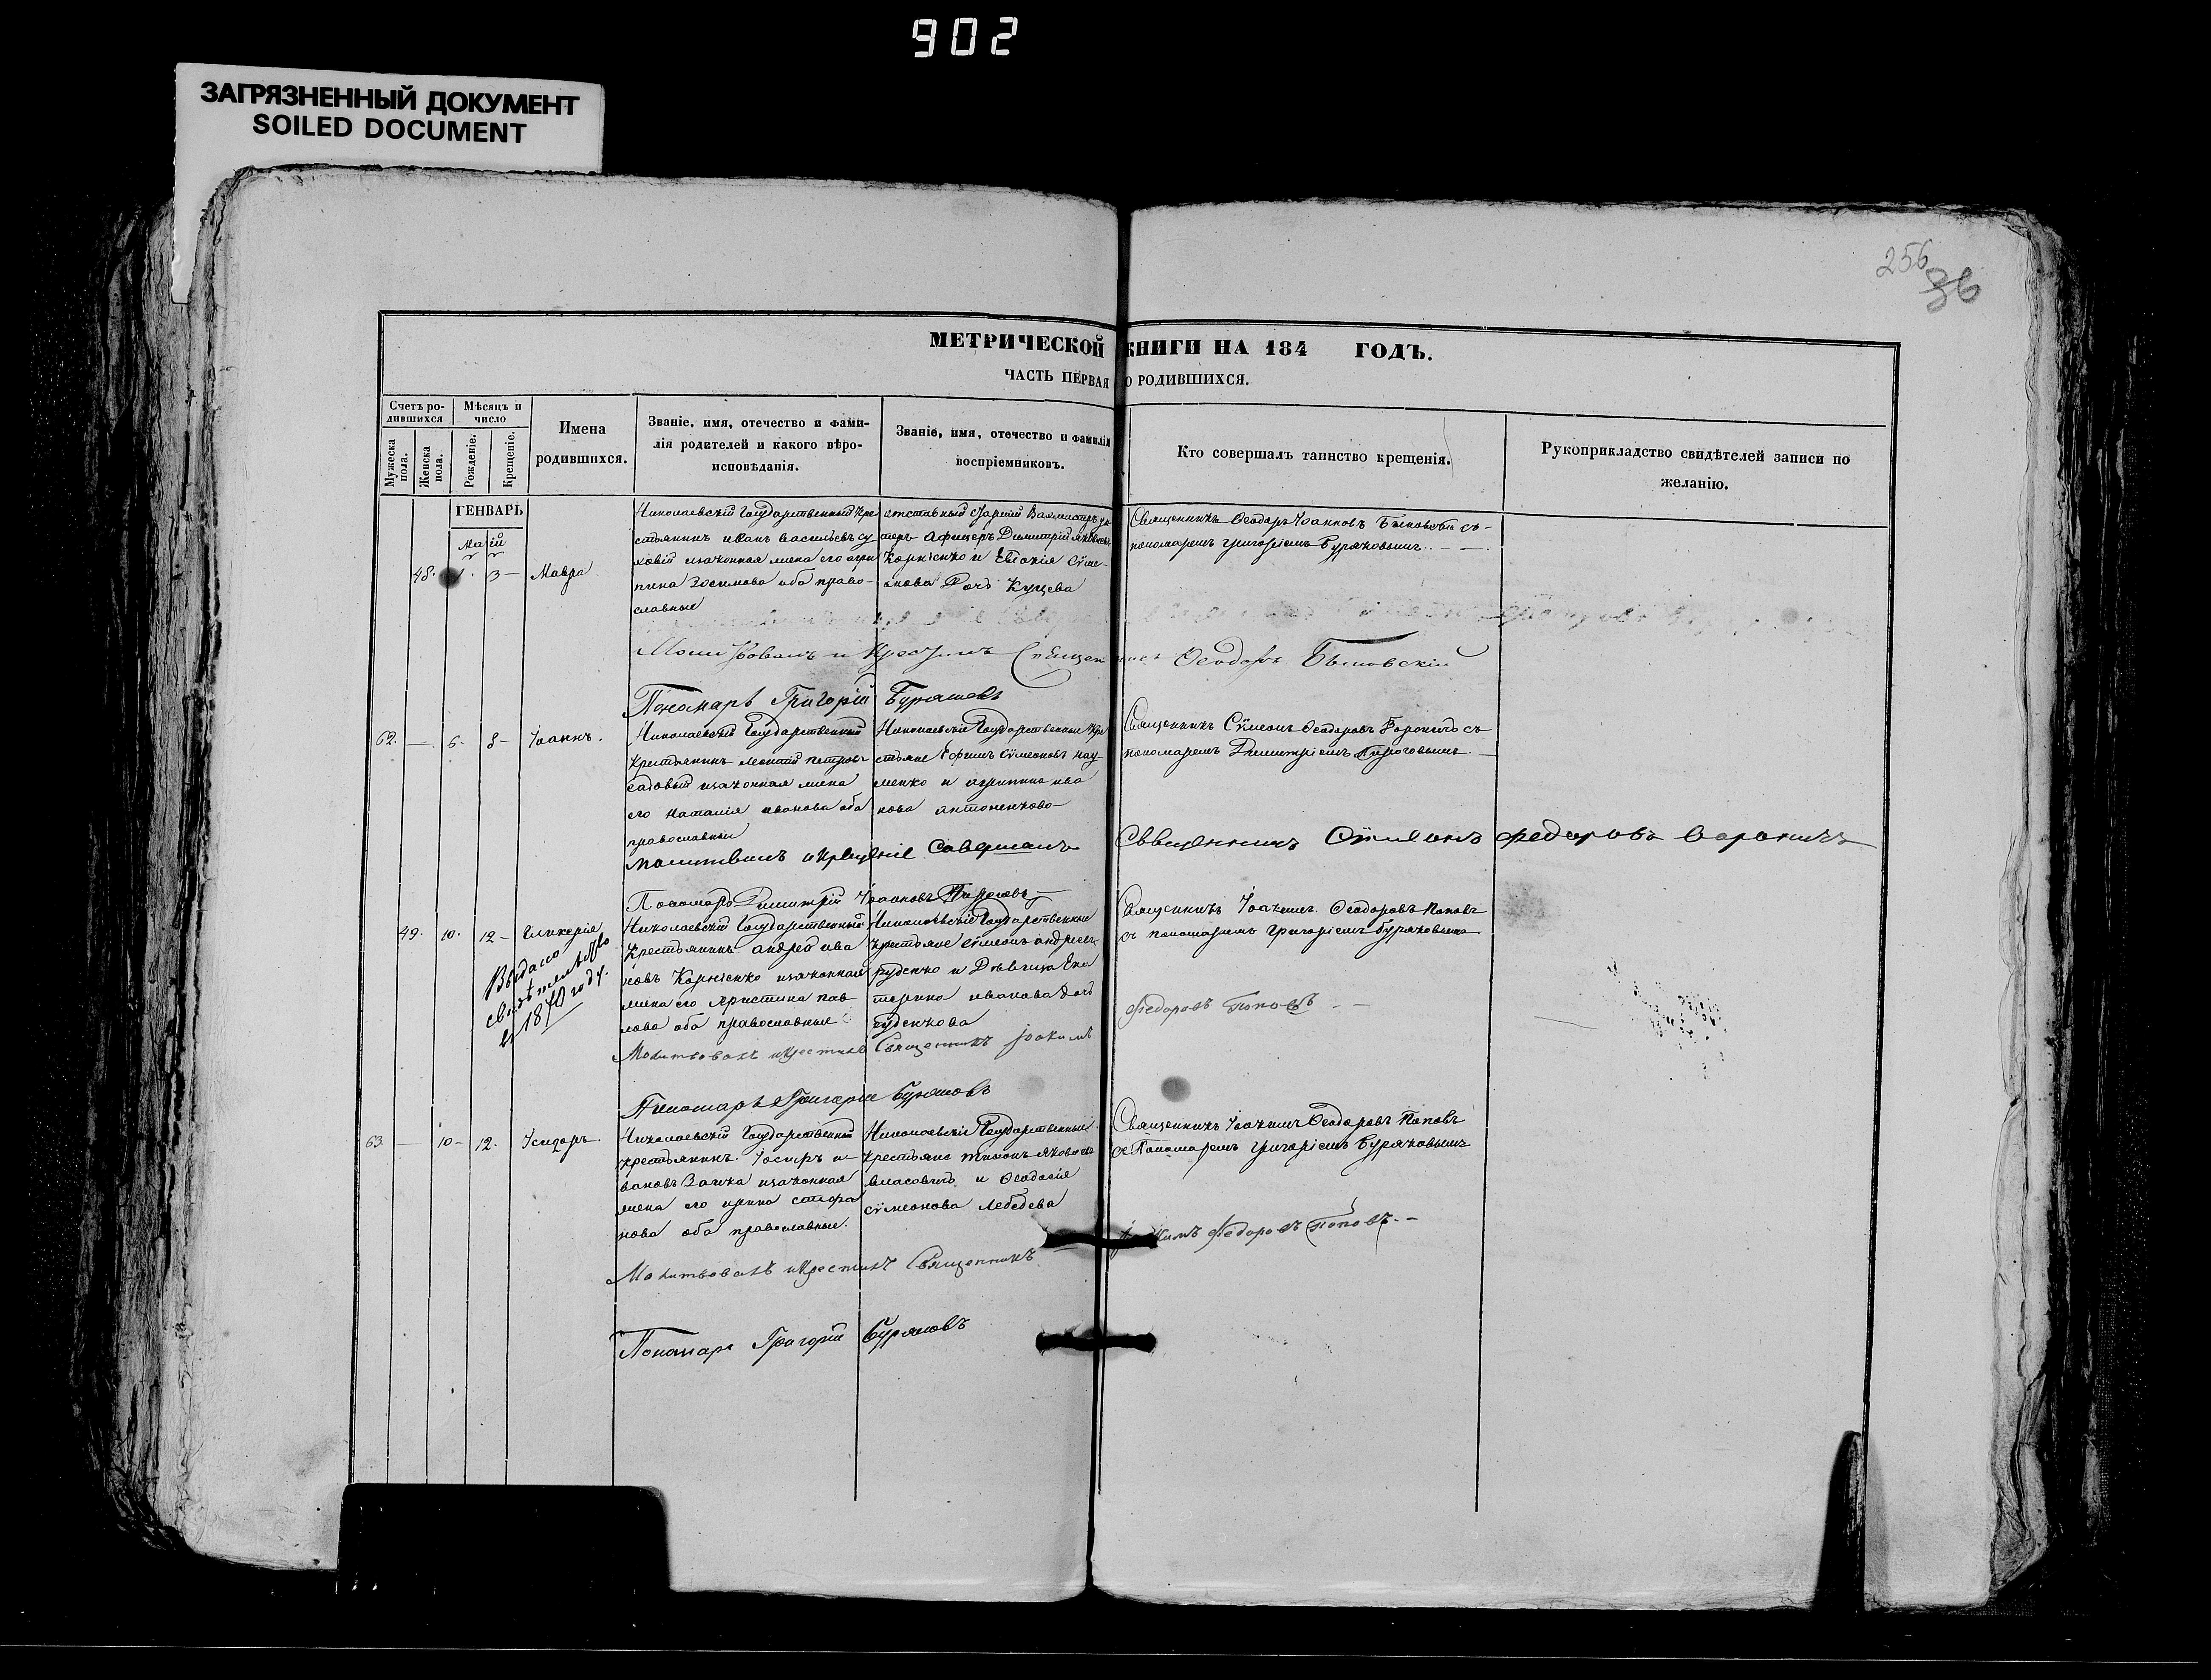 902
ЗАГРЯЗНЕННЫЙ ДОКУМЕНТ
SOILED DOCUMENT
256
36
МЕТРИЧЕСКОЙ КНИГИ НА 184 ГОДЪ.
ЧАСТЬ ПЕРВАЯ О РОДИВШИХСЯ.
Счетъ ро-
дившихся
Мужеска пола.
Женска пола.
Мѣсяцъ и
число
Рожденіе.
Крещеніе.
Имена
родившихся.
Званіе, имя, отечество и фами-
лія родителей и какого вѣро-
исповѣданія.
Званіе, имя, отечество и фамилія
воспріемниковъ.
Кто совершалъ таинство крещенія.
Рукоприкладство свидѣтелей записи по
желанію.
ГЕНВАРЬ
Маій
48. 1. 3 Мавра
Николаевскій Государственный кре
стьянинъ иванъ васильевъ су
ховій изаконная жена его агри
пина Зосимова оба право-
славные
отставный Старшій Вахмистръ ун
теръ Афицеръ Димитрій
Корніенко и Евдокія Сѵме-
онова Дочь Куцева
Священникъ Ѳеодоръ Іоанновъ Бѣлковскій съ
пономаремъ григоріемъ Буряковымъ.
Молитвовалъ и Крестилъ Священникъ Ѳеодоръ
Пономарь Григорій Буряковъ
62. — 6. 8 Іоаннъ.
Николаевскій Государственный
крестьянинъ леонтій петровъ
садовый изаконная жена
его наталія иванова оба
православные
Николаевскіе Государственные кре
стьяне Ефимъ Сѵмеоновъ нау
менко и агрипина ива
нова антоненкова
Священникъ Сѵмеонъ Ѳеодоровъ Вороничъ съ
пономаремъ Димитріемъ Пироговымъ.
молитвилъ икрещеніе Совершалъ Священникъ Сѵмеонъ федоровъ вороничъ
Пономарь Димитрій Іоанновъ Пироговъ
49. 10. 12 Гликерія
Выдано
свидѣтельство
въ 1870 году.
Николаевскій Государственный
крестьянинъ андрей ива
новъ Корніенко изаконная
жена его христина пав
лова оба православные
Николаевскіе Государственные
крестьяне сѵмеонъ андреевъ
руденко и Дѣвица Ека
терина иванова дочь
руденкова
Священникъ Іоакимъ Ѳеодоровъ Поповъ
съ пономаремъ григоріемъ буряковымъ
Молитвовалъ икрестилъ Священникъ Іоакимъ Федоровъ Поповъ
Пономарь Григорій Буряковъ
63 — 10 12. Ісидоръ.
Николаевскій Государственный
крестьянинъ Іосифъ и-
вановъ Заика изаконная
жена его ирина стефа
нова оба православные.
Николаевскіе Государственные
крестьяне тихонъ яковлевъ
власовичъ и Ѳеодосія
сѵмеонова Лебедева
Священникъ Іоакимъ Ѳеодоровъ Поповъ
съ Пономаремъ григоріемъ Буряковымъ
Молитвовалъ икрестилъ Священникъ Іоакимъ Федоровъ Поповъ.
Пономарь Григорій Буряковъ